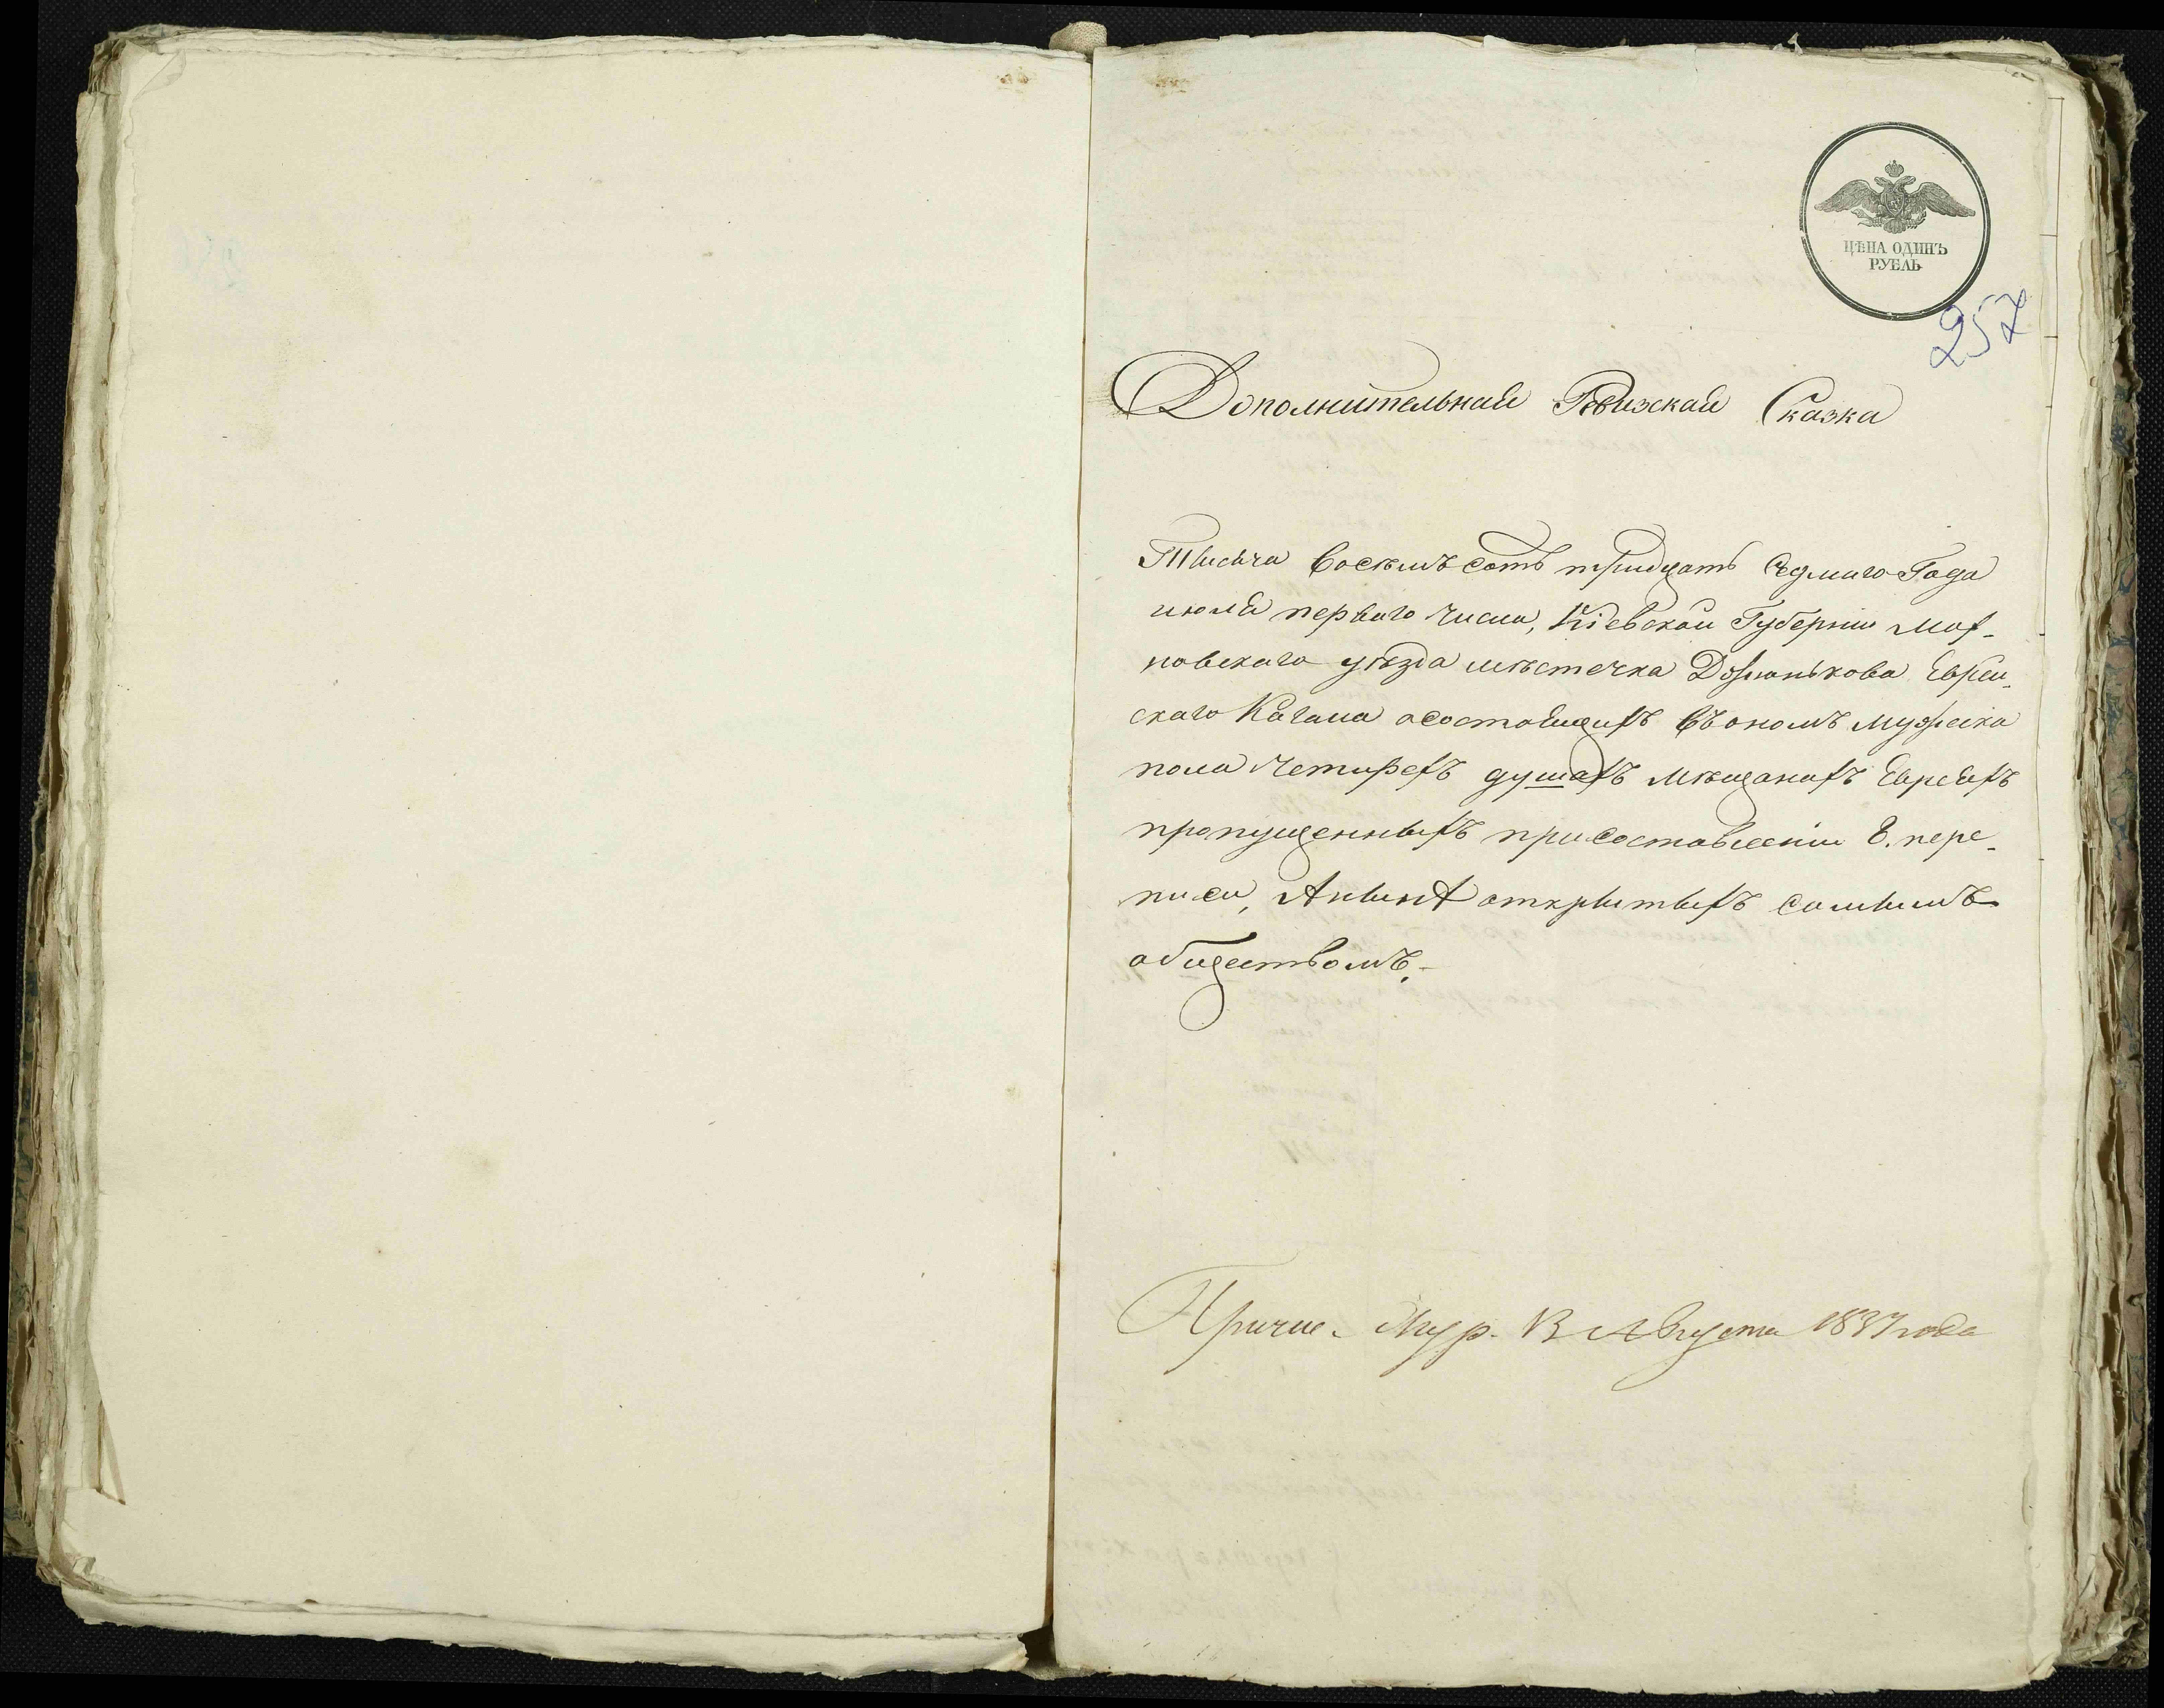 ЦѢНА ОДИНЪ
РУБЛЬ
257
Дополнительная Ревизская Сказка
Тысяча восемъ сотъ тридцать седмаго Года
июля перваго числа, Кіевской Губерніи Мах-
новскаго уѣзда мѣстечка Дзюнькова Еврей-
скаго Кагала осостоящихъ въ ономъ мужеска
пола четирехъ душахъ мѣщанахъ Евреяхъ
пропущенныхъ присоставленіи 8. пере-
писи, Анынѣ открытыхъ самымъ
обществомъ.-
13 Августа 1837 года